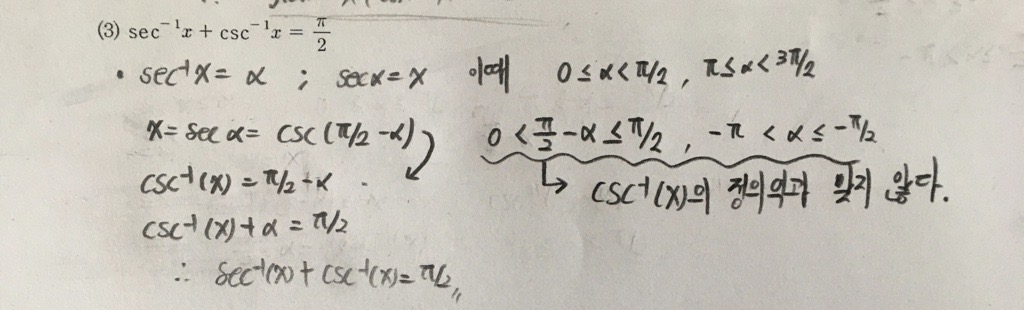 (3) sec⁻¹x + csc⁻¹x = π/2
• sec⁻¹x = α ; secα = x 이때 0 ≤ α < π/2 , π ≤ α < 3π/2
x = sec α = csc(π/2 - α) 0 < π/2 - α ≤ π/2 , -π < α ≤ -π/2
csc⁻¹(x) = π/2 - α . ↳ csc⁻¹(x)의 정의역과 맞지 않다.
csc⁻¹(x) + α = π/2
∴ sec⁻¹(x) + csc⁻¹(x) = π/2 〃